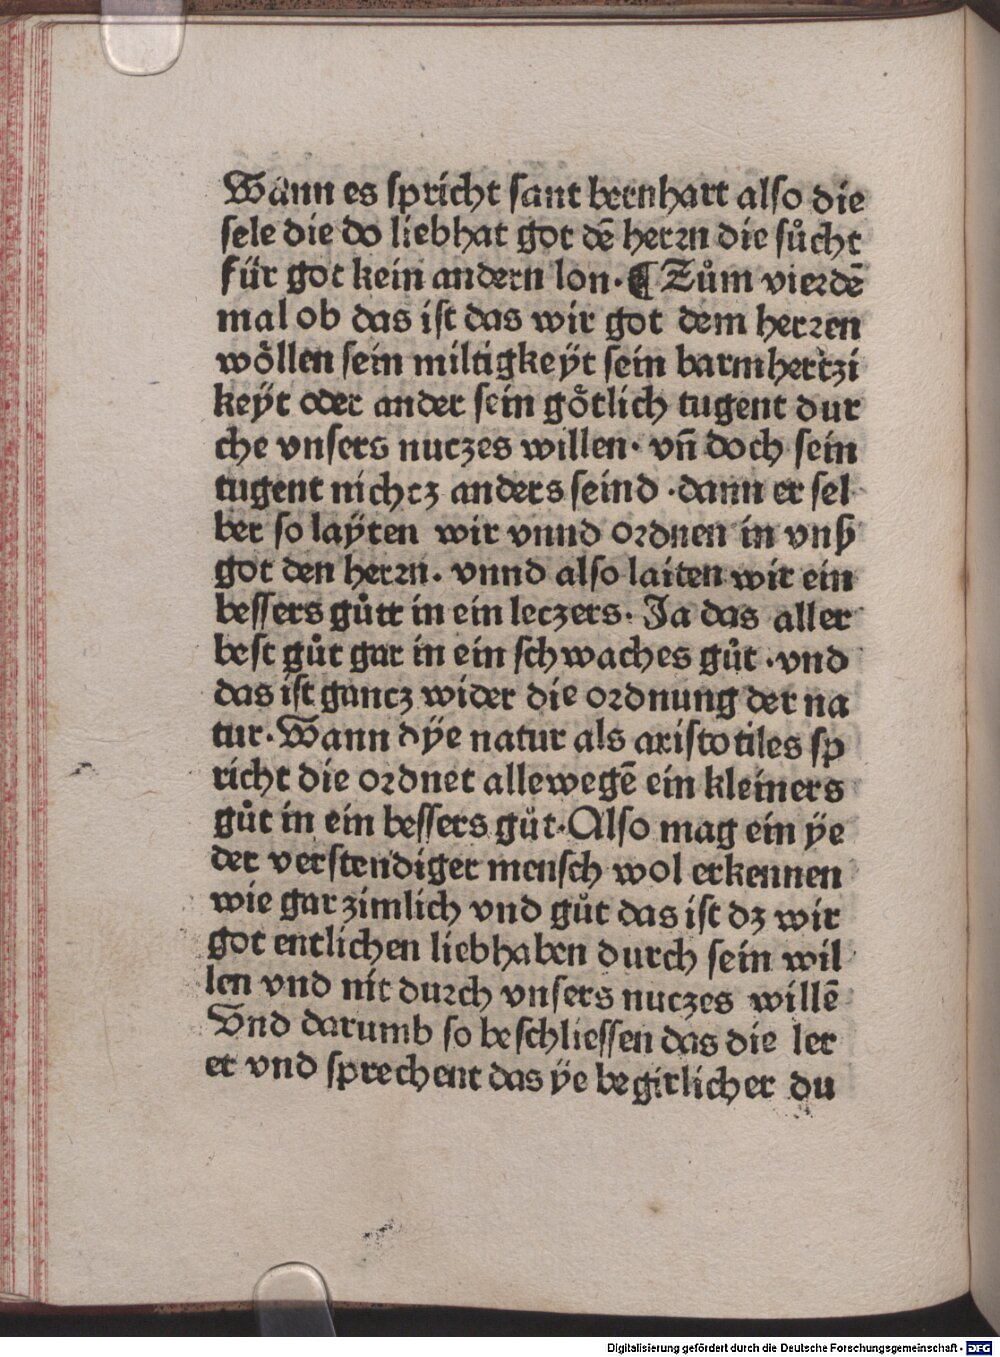 Wann es spricht sant bernhart also die
sele die do liebhat got dē herrn die sůcht
für got kein andern lon. ¶ Zům vierdē
mal ob das ist das wir got dem herren
wöllen sein miltigkeÿt sein barmhertzi
keÿt oder ander sein götlich tugent dur
che vnsers nuczes willen. vn̄ doch sein
tugent nichcz anders seind .dann er sel
ber so laÿten wir vnnd ordnen in vnß
got den herrn. vnnd also laiten wir ein
bessers gůtt in ein leczers. Ja das aller
best gůt gar in ein schwaches gůt .vnd
das ist gancz wider die ordnung der na
tur. Wann dÿe natur als aristotiles sp
richt die ordnet allewegē ein kleiners
gůt in ein bessers gůt. Also mag ein ÿe
der verstendiger mensch wol erkennen
wie gar zimlich vnd gůt das ist dz wir
got entlichen liebhaben durch sein wil
len vnd nit durch vnsers nuczes willē
Vnd darumb so beschliessen das die ler
er vnd sprechent das ÿe begirlicher du
Digitalisierung gefördert durch die Deutsche Forschungsgemeinschaft - DFG